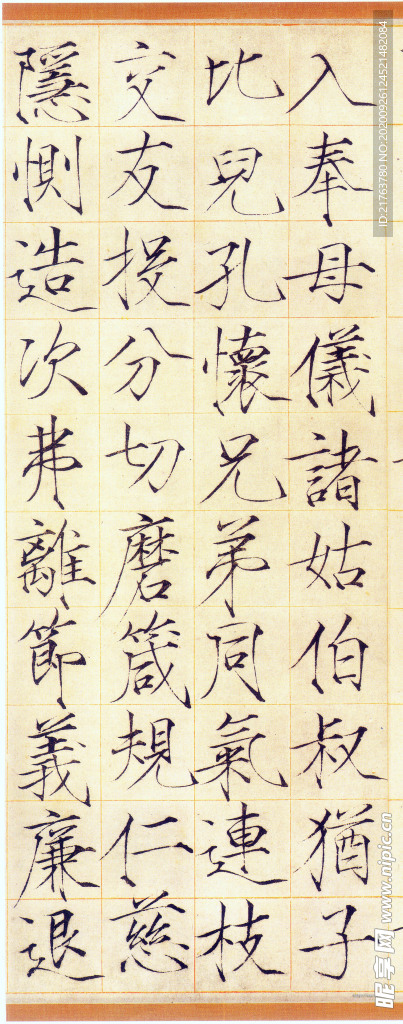 入奉母儀諸姑伯叔猶子
比兒孔懷兄弟同氣連枝
交友投分切磨箴規仁慈
隱惻造次弗離節義廉退
ID:21763780 NO:20200926124521482084
昵享网 www.nipic.cn